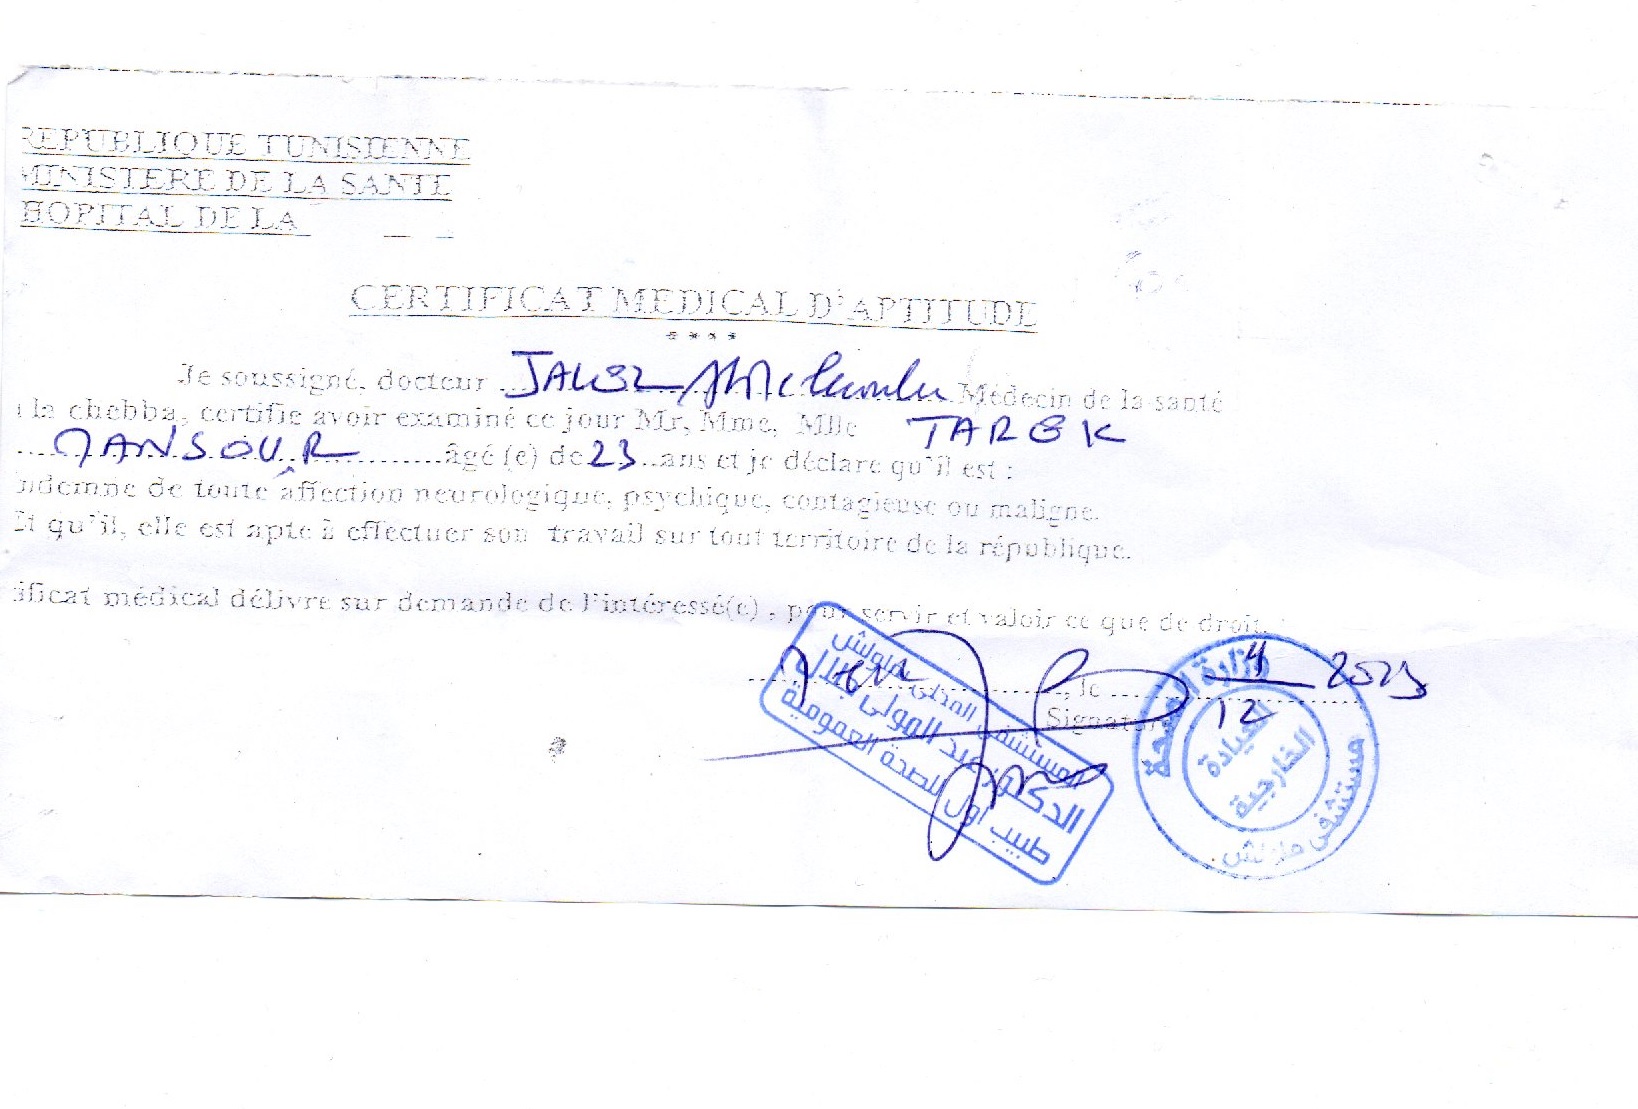 REPUBLIQUE TUNISIENNE
MINISTERE DE LA SANTE
HOPITAL DE LA
CERTIFICAT MEDICAL D'APTITUDE
****
Je soussigné, docteur Médecin de la santé
la chebba, certifie avoir examiné ce jour Mr, Mme, Mlle TAREK
MANSOUR âgé (e) de 23 ans et je déclare qu'il est :
indemne de toute affection neurologique, psychique, contagieuse ou maligne.
Et qu'il, elle est apte à effectuer son travail sur tout territoire de la république.
ificat médical délivre sur demande de l'intéressé(e) , pour servir et valoir ce que de droit.
, le 4 2023
Signature 12
المستشفى المحلي ملولش
الدكتور عبد المولى
طبيب أول للصحة العمومية
وزارة الصحة
العيادة
الخارجية
مستشفى ملولش